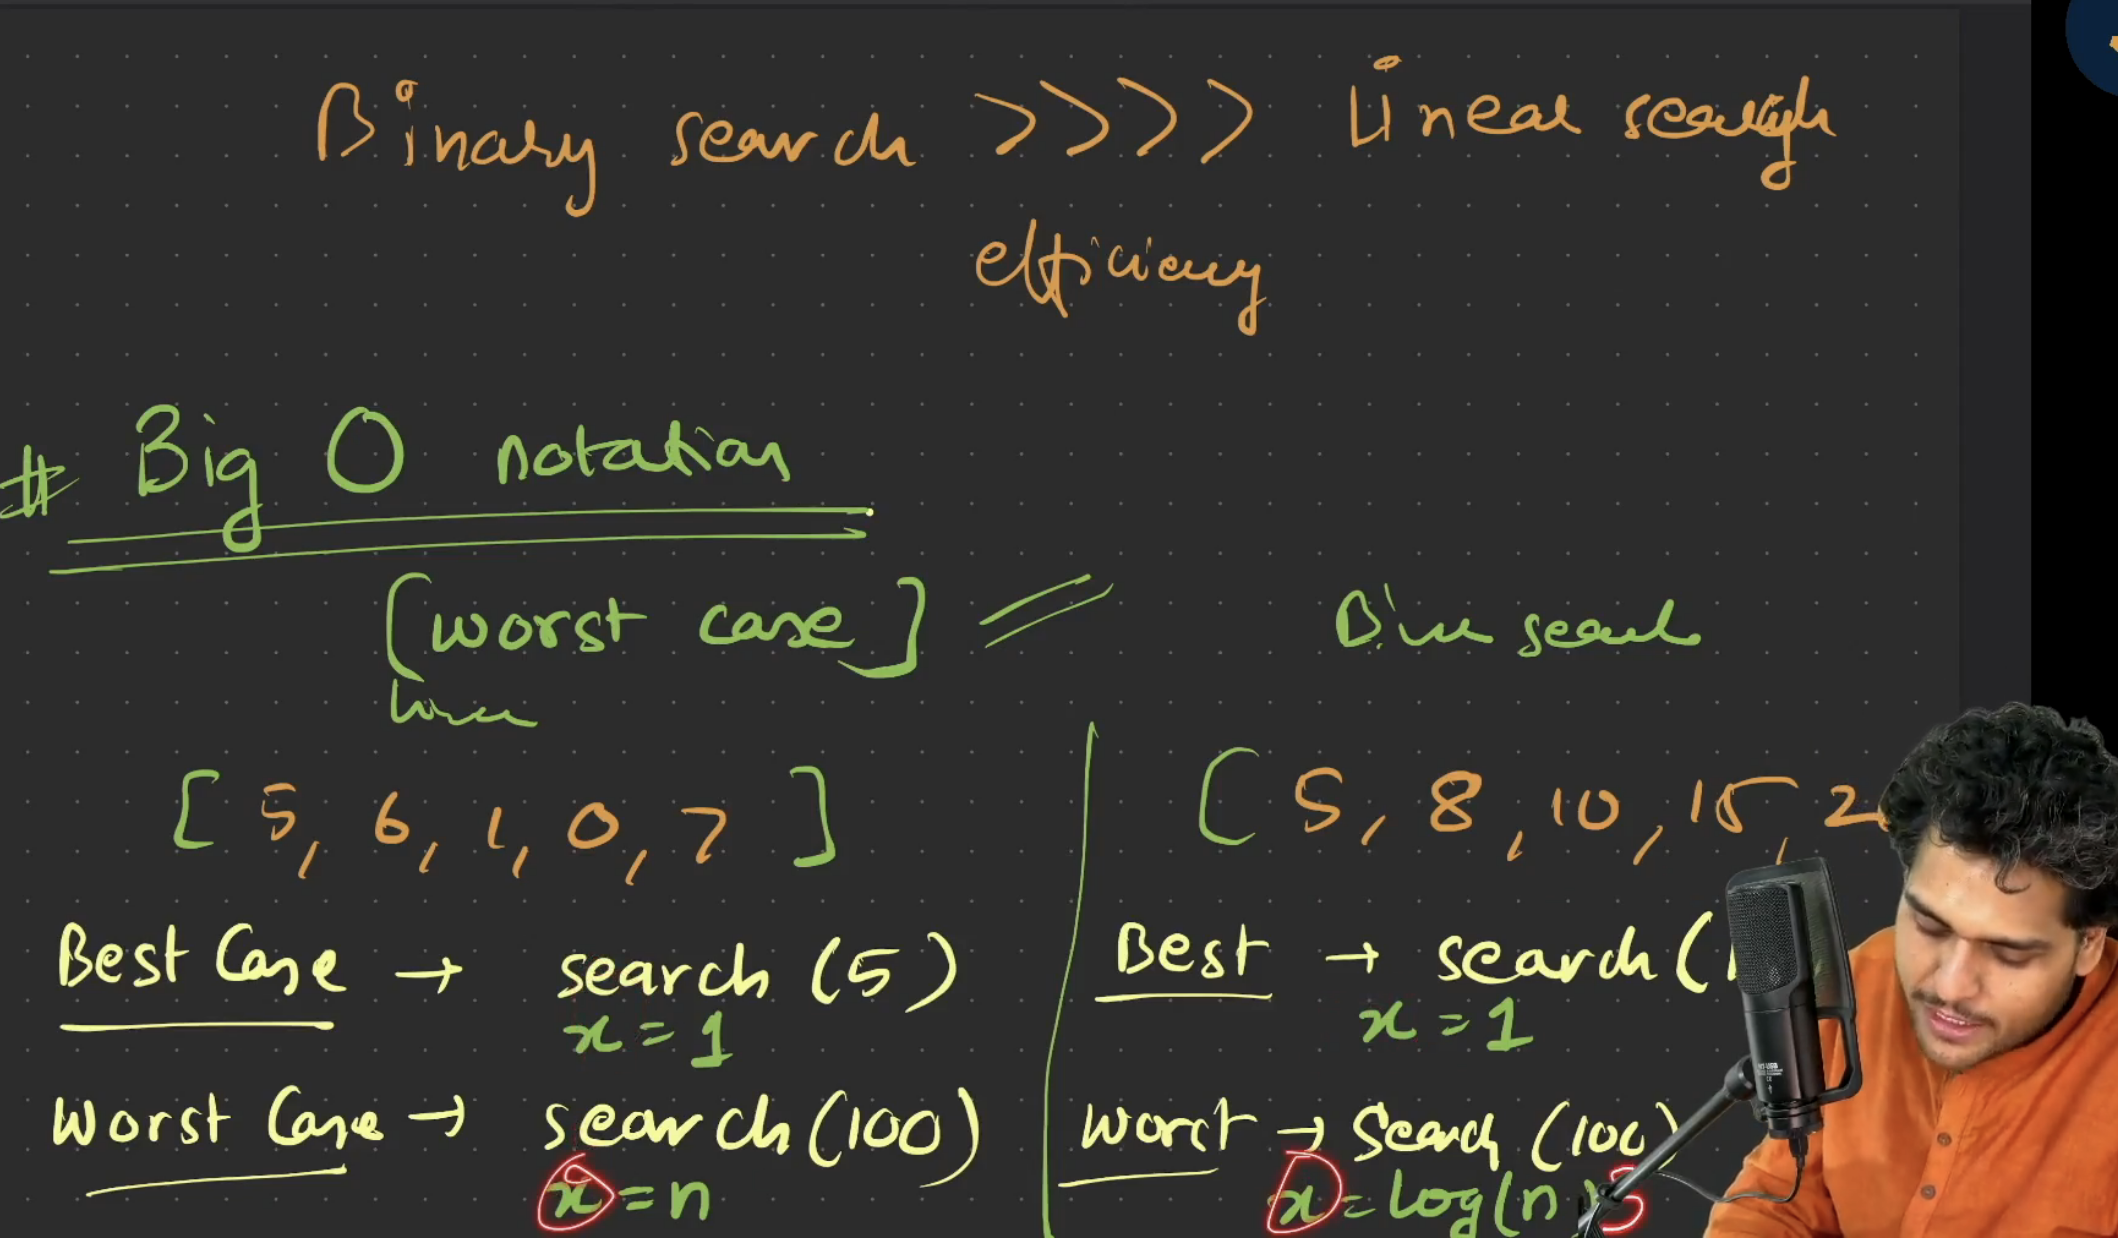 Binary search >>>> Linear search
efficiency
# Big O notation
[worst case]
[5, 6, 1, 0, 7]
Best Case → search (5)
x = 1
Worst Case → search (100)
x = n
search
[5, 8, 10, 15, 2
Best → search (1
x = 1
Worst → Search (100)
x = log(n)